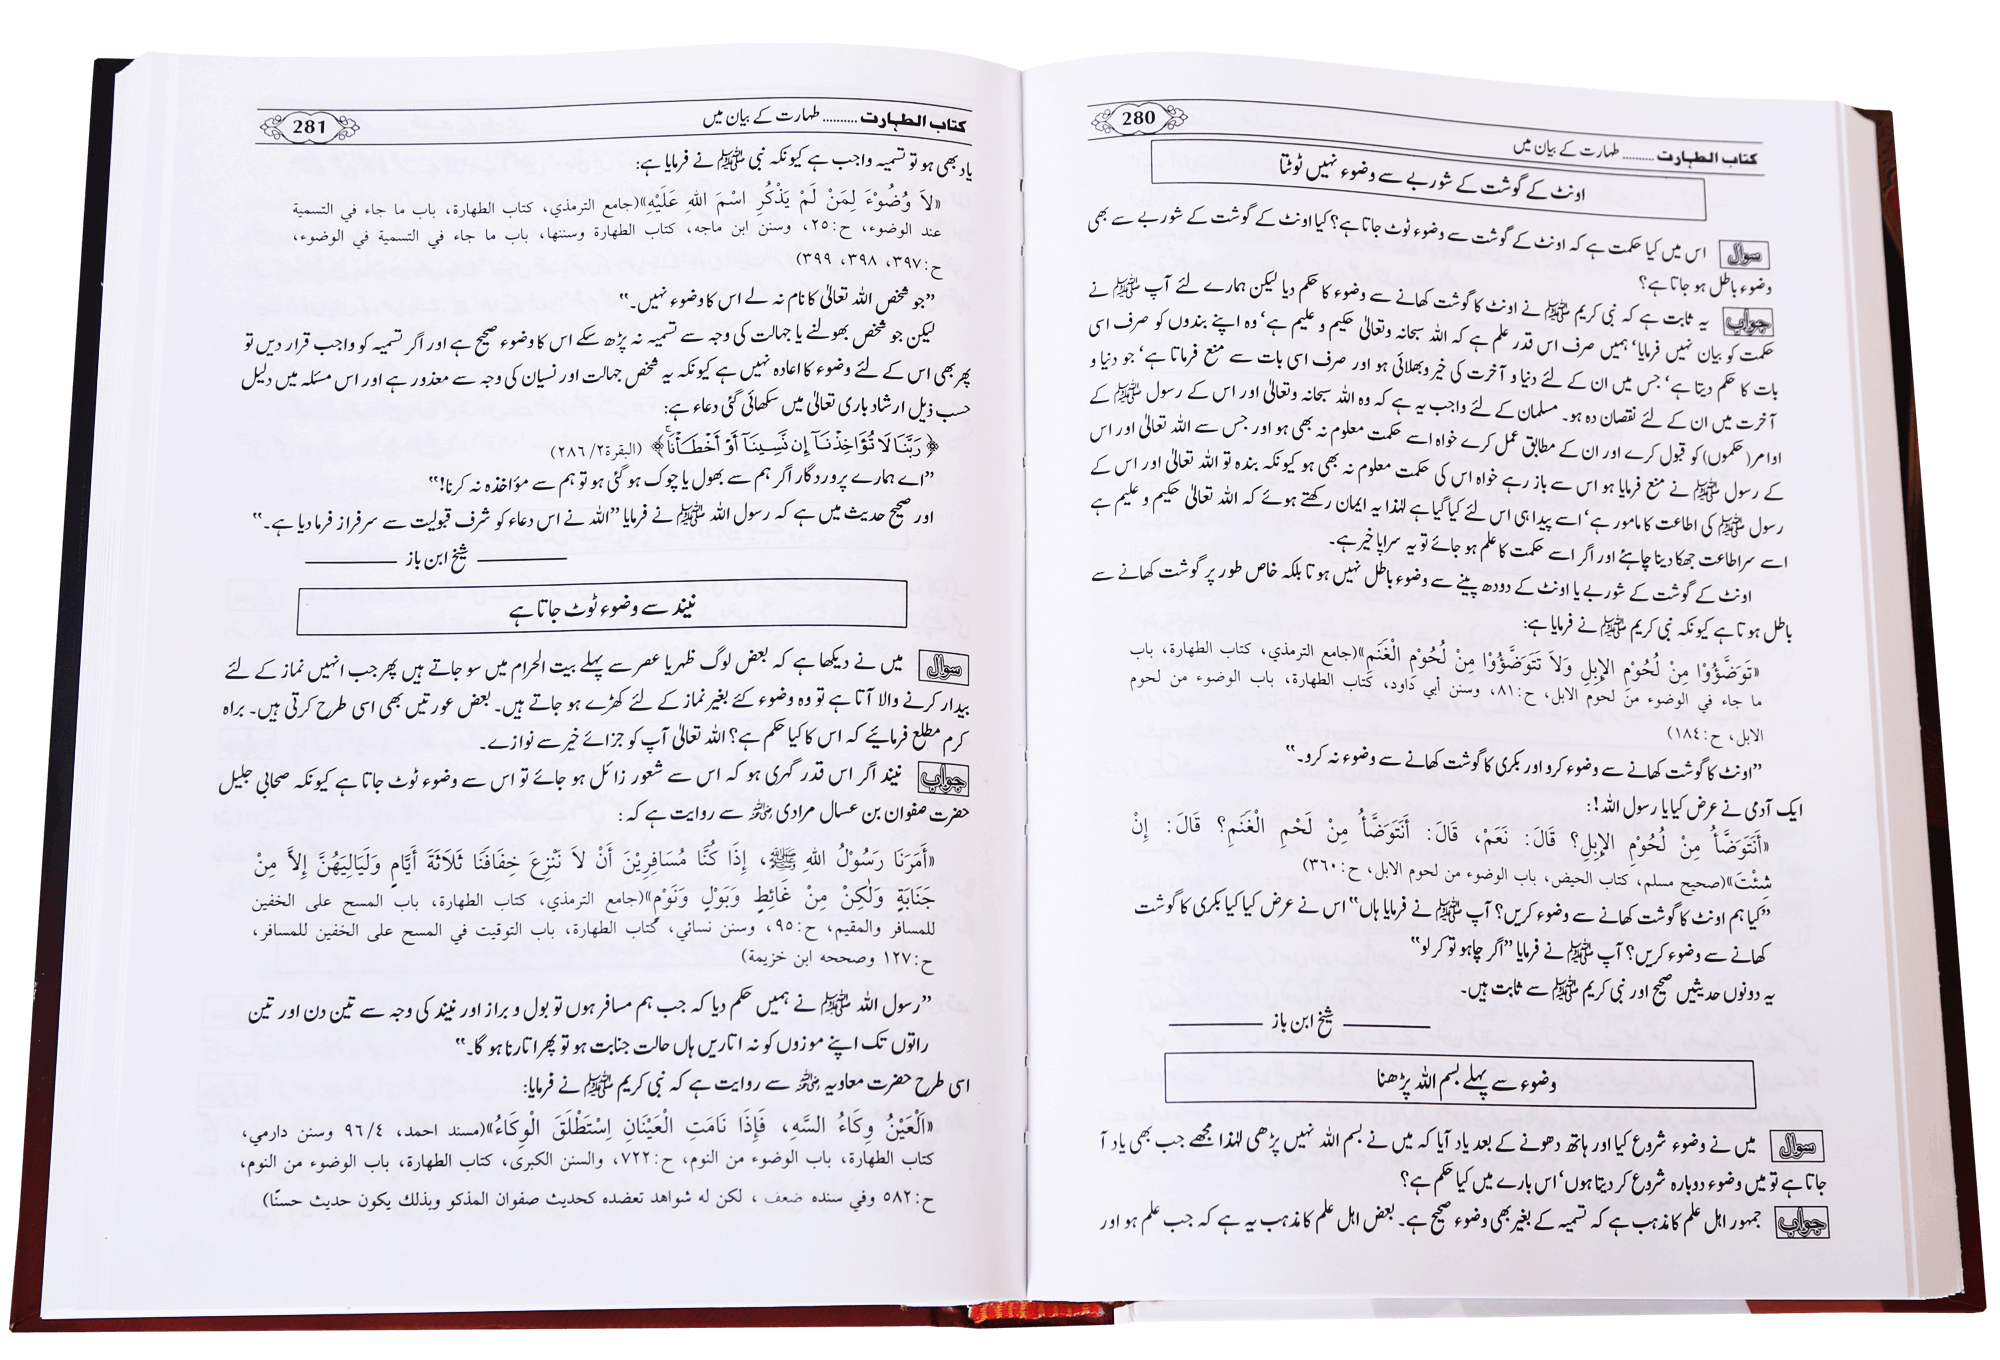 280
کتاب الطہارت ......... طہارت کے بیان میں
اونٹ کے گوشت کے شوربے سے وضوء نہیں ٹوٹتا
سوال اس میں کیا حکمت ہے کہ اونٹ کے گوشت سے وضوء ٹوٹ جاتا ہے؟ کیا اونٹ کے گوشت کے شوربے سے بھی
وضوء باطل ہو جاتا ہے؟
جواب یہ ثابت ہے کہ نبی کریم ﷺ نے اونٹ کا گوشت کھانے سے وضوء کا حکم دیا لیکن ہمارے لئے آپ ﷺ نے
حکمت کو بیان نہیں فرمایا‘ ہمیں صرف اس قدر علم ہے کہ اللہ سبحانہ وتعالیٰ حکیم و علیم ہے‘ وہ اپنے بندوں کو صرف اسی
بات کا حکم دیتا ہے‘ جس میں ان کے لئے دنیا و آخرت کی خیر وبھلائی ہو اور صرف اسی بات سے منع فرماتا ہے‘ جو دنیا و
آخرت میں ان کے لئے نقصان دہ ہو۔ مسلمان کے لئے واجب یہ ہے کہ وہ اللہ سبحانہ وتعالیٰ اور اس کے رسول ﷺ کے
اوامر (حکموں) کو قبول کرے اور ان کے مطابق عمل کرے خواہ اسے حکمت معلوم نہ بھی ہو اور جس سے اللہ تعالیٰ اور اس
کے رسول ﷺ نے منع فرمایا ہو اس سے باز رہے خواہ اس کی حکمت معلوم نہ بھی ہو کیونکہ بندہ تو اللہ تعالیٰ اور اس کے
رسول ﷺ کی اطاعت کا مامور ہے‘ اسے پیدا ہی اس لئے کیا گیا ہے لہٰذا یہ ایمان رکھتے ہوئے کہ اللہ تعالیٰ حکیم و علیم ہے
اسے سراطاعت جھکا دینا چاہئے اور اگر اسے حکمت کا علم ہو جائے تو یہ سراپا خیر ہے۔
اونٹ کے گوشت کے شوربے یا اونٹ کے دودھ پینے سے وضوء باطل نہیں ہوتا بلکہ خاص طور پر گوشت کھانے سے
باطل ہوتا ہے کیونکہ نبی کریم ﷺ نے فرمایا ہے:
«تَوَضَّؤُوْا مِنْ لُحُوْمِ الإِبِلِ وَلاَ تَتَوَضَّؤُوْا مِنْ لُحُوْمِ الْغَنَمِ»(جامع الترمذي، کتاب الطهارة، باب
ما جاء في الوضوء من لحوم الابل، ح:۸۱، وسنن أبي داود، كتاب الطهارة، باب الوضوء من لحوم
الابل، ح:۱۸٤)
”اونٹ کا گوشت کھانے سے وضوء کرو اور بکری کا گوشت کھانے سے وضوء نہ کرو۔“
ایک آدمی نے عرض کیا یا رسول اللہ!:
«أَنَتَوَضَّأُ مِنْ لُحُوْمِ الإِبِلِ؟ قَالَ: نَعَمْ، قَالَ: أَنَتَوَضَّأُ مِنْ لَحْمِ الْغَنَمِ؟ قَالَ: إِنْ
شِئْتَ»(صحيح مسلم، كتاب الحيض، باب الوضوء من لحوم الابل، ح:۳٦۰)
”کیا ہم اونٹ کا گوشت کھانے سے وضوء کریں؟ آپ ﷺ نے فرمایا ہاں“ اس نے عرض کیا کیا بکری کا گوشت
کھانے سے وضوء کریں؟ آپ ﷺ نے فرمایا ”اگر چاہو تو کر لو“
یہ دونوں حدیثیں صحیح اور نبی کریم ﷺ سے ثابت ہیں۔
شیخ ابن باز
وضوء سے پہلے بسم اللہ پڑھنا
سوال میں نے وضوء شروع کیا اور ہاتھ دھونے کے بعد یاد آیا کہ میں نے بسم اللہ نہیں پڑھی لہٰذا مجھے جب بھی یاد آ
جاتا ہے تو میں وضوء دوبارہ شروع کر دیتا ہوں‘ اس بارے میں کیا حکم ہے؟
جواب جمہور اہل علم کا مذہب ہے کہ تسمیہ کے بغیر بھی وضوء صحیح ہے۔ بعض اہل علم کا مذہب یہ ہے کہ جب علم ہو اور
کتاب الطہارت ......... طہارت کے بیان میں
281
یاد بھی ہو تو تسمیہ واجب ہے کیونکہ نبی ﷺ نے فرمایا ہے:
«لاَ وُضُوْءَ لِمَنْ لَمْ يَذْكُرِ اسْمَ اللهِ عَلَيْهِ»(جامع الترمذي، كتاب الطهارة، باب ما جاء في التسمية
عند الوضوء، ح:۲۵، وسنن ابن ماجه، كتاب الطهارة وسننها، باب ما جاء في التسمية في الوضوء،
ح:۳۹۷، ۳۹۸، ۳۹۹)
”جو شخص اللہ تعالیٰ کا نام نہ لے اس کا وضوء نہیں۔“
لیکن جو شخص بھولنے یا جہالت کی وجہ سے تسمیہ نہ پڑھ سکے اس کا وضوء صحیح ہے اور اگر تسمیہ کو واجب قرار دیں تو
پھر بھی اس کے لئے وضوء کا اعادہ نہیں ہے کیونکہ یہ شخص جہالت اور نسیان کی وجہ سے معذور ہے اور اس مسئلہ میں دلیل
حسب ذیل ارشاد باری تعالیٰ میں سکھائی گئی دعاء ہے:
﴿رَبَّنَا لَا تُؤَاخِذْنَآ إِن نَّسِينَآ أَوْ أَخْطَأْنَا﴾ (البقرة۲/ ۲۸٦)
”اے ہمارے پروردگار اگر ہم سے بھول یا چوک ہو گئی ہو تو ہم سے مؤاخذہ نہ کرنا!“
اور صحیح حدیث میں ہے کہ رسول اللہ ﷺ نے فرمایا ”اللہ نے اس دعاء کو شرف قبولیت سے سرفراز فرما دیا ہے۔“
شیخ ابن باز
نیند سے وضوء ٹوٹ جاتا ہے
سوال میں نے دیکھا ہے کہ بعض لوگ ظہر یا عصر سے پہلے بیت الحرام میں سو جاتے ہیں پھر جب انہیں نماز کے لئے
بیدار کرنے والا آتا ہے تو وہ وضوء کئے بغیر نماز کے لئے کھڑے ہو جاتے ہیں۔ بعض عورتیں بھی اسی طرح کرتی ہیں۔ براہ
کرم مطلع فرمائیے کہ اس کا کیا حکم ہے؟ اللہ تعالیٰ آپ کو جزائے خیر سے نوازے۔
جواب نیند اگر اس قدر گہری ہو کہ اس سے شعور زائل ہو جائے تو اس سے وضوء ٹوٹ جاتا ہے کیونکہ صحابی جلیل
حضرت صفوان بن عسال مرادی رضی اللہ عنہ سے روایت ہے کہ:
«أَمَرَنَا رَسُوْلُ اللهِ ﷺ، إِذَا كُنَّا مُسَافِرِيْنَ أَنْ لاَ نَنْزِعَ خِفَافَنَا ثَلاَثَةَ أَيَّامٍ وَلَيَالِيَهُنَّ إِلاَّ مِنْ
جَنَابَةٍ وَلٰكِنْ مِنْ غَائِطٍ وَبَوْلٍ وَنَوْمٍ»(جامع الترمذي، كتاب الطهارة، باب المسح على الخفين
للمسافر والمقيم، ح:۹٥، وسنن نسائي، كتاب الطهارة، باب التوقيت في المسح على الخفين للمسافر،
ح:۱۲۷ وصححه ابن خزيمة)
”رسول اللہ ﷺ نے ہمیں حکم دیا کہ جب ہم مسافر ہوں تو بول و براز اور نیند کی وجہ سے تین دن اور تین
راتوں تک اپنے موزوں کو نہ اتاریں ہاں حالت جنابت ہو تو پھر اتارنا ہو گا۔“
اسی طرح حضرت معاویہ رضی اللہ عنہ سے روایت ہے کہ نبی کریم ﷺ نے فرمایا:
«اَلْعَيْنُ وِكَاءُ السَّهِ، فَإِذَا نَامَتِ الْعَيْنَانِ اِسْتَطْلَقَ الْوِكَاءُ»(مسند احمد، ٤/ ۹٦ وسنن دارمي،
كتاب الطهارة، باب الوضوء من النوم، ح:۷۲۲، والسنن الكبرى، كتاب الطهارة، باب الوضوء من النوم،
ح:٥۸۲ وفي سنده ضعف ، لكن له شواهد تعضده كحديث صفوان المذكو وبذلك يكون حديث حسنًا)